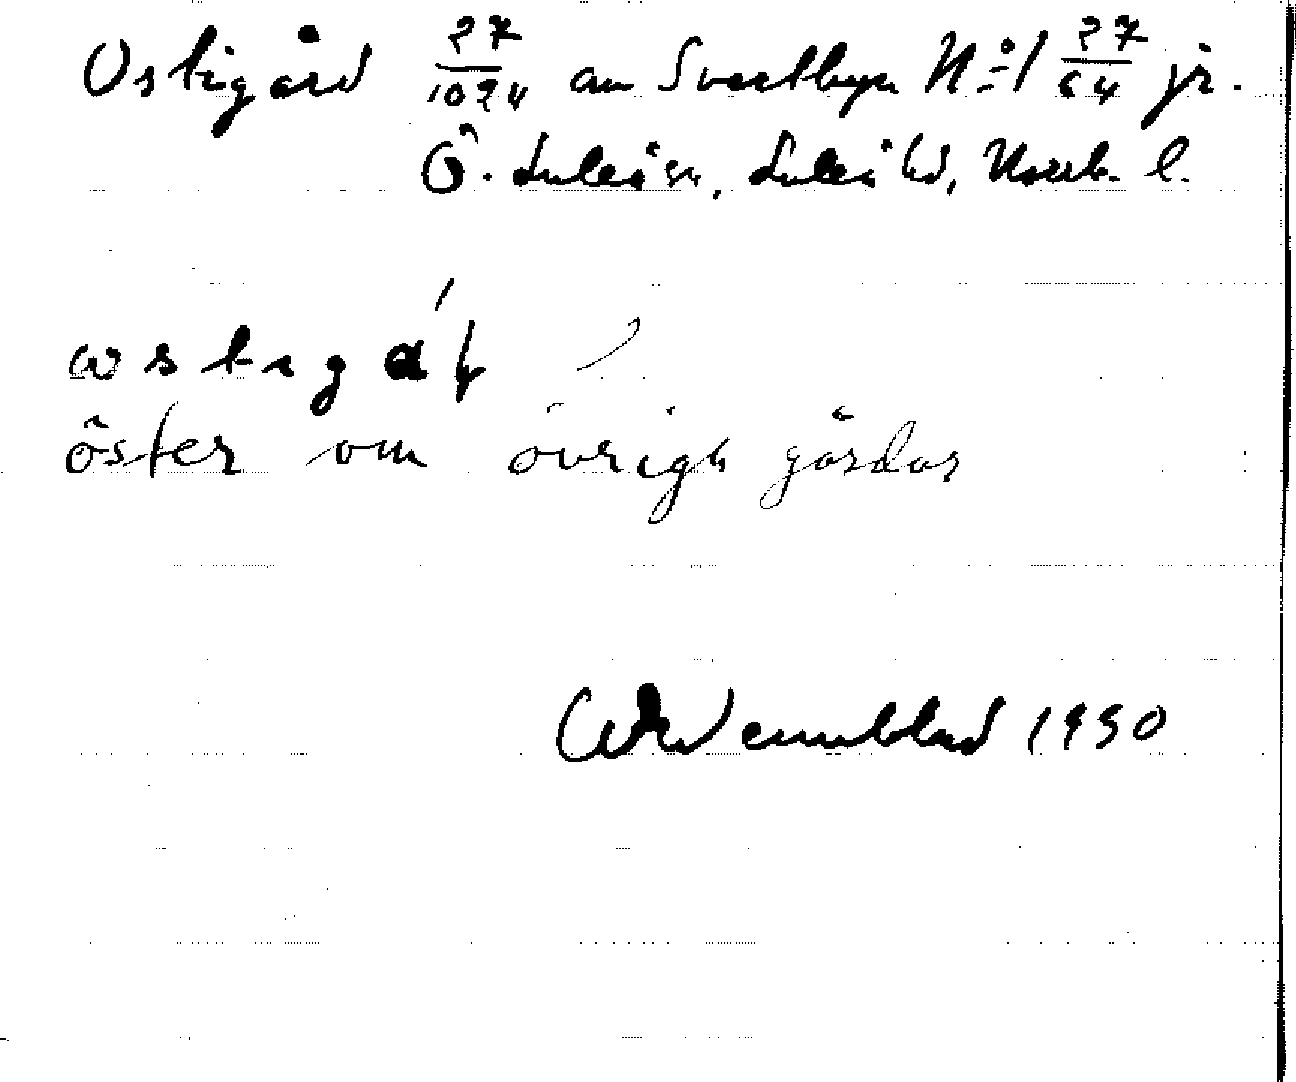 Ostigård 27/1024 av Svartbyn N:o 1 27/64 jr.
Ö. Luleå sn, Luleå hd, Norrb. l.
ωstıgáɼ
öster om övriga gårdar
Wennblad 1930